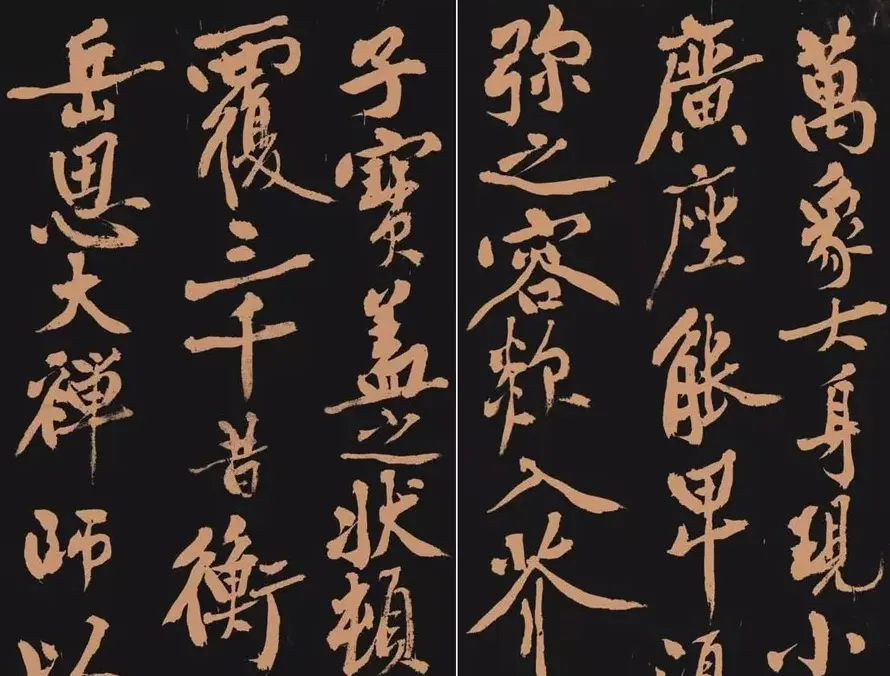 萬象大身現小
廣座能卑須
弥之容欻入芥
子寶蓋之狀頓
覆三千昔衡
岳思大禪師以